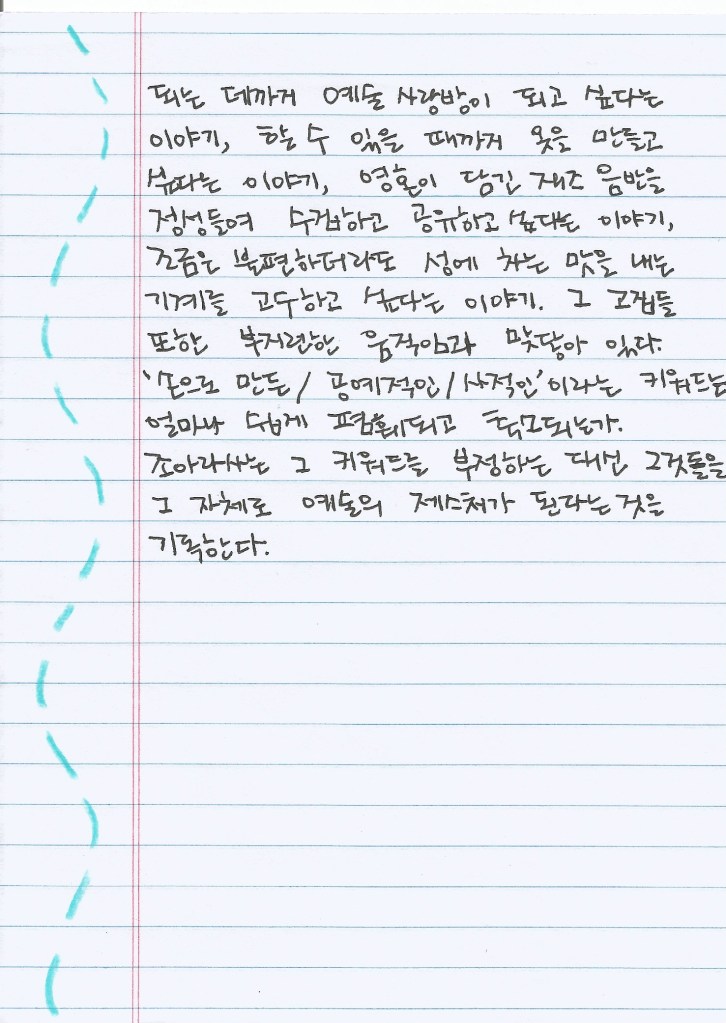 되는 데까지 예술 사랑방이 되고 싶다는
이야기, 할 수 있을 때까지 옷을 만들고
싶다는 이야기, 영혼이 담긴 재즈 음반을
정성들여 수집하고 공유하고 싶다는 이야기,
조금은 불편하더라도 성에 차는 맛을 내는
기계를 고수하고 싶다는 이야기. 그 고집들
또한 부지런한 움직임과 맞닿아 있다.
'손으로 만든/ 공예적인/사적인'이라는 키워드는
얼마나 쉽게 폄훼되고 축소되는가.
조아라사는 그 키워드를 부정하는 대신 그것들을
그 자체로 예술의 제스처가 된다는 것을
기록한다.